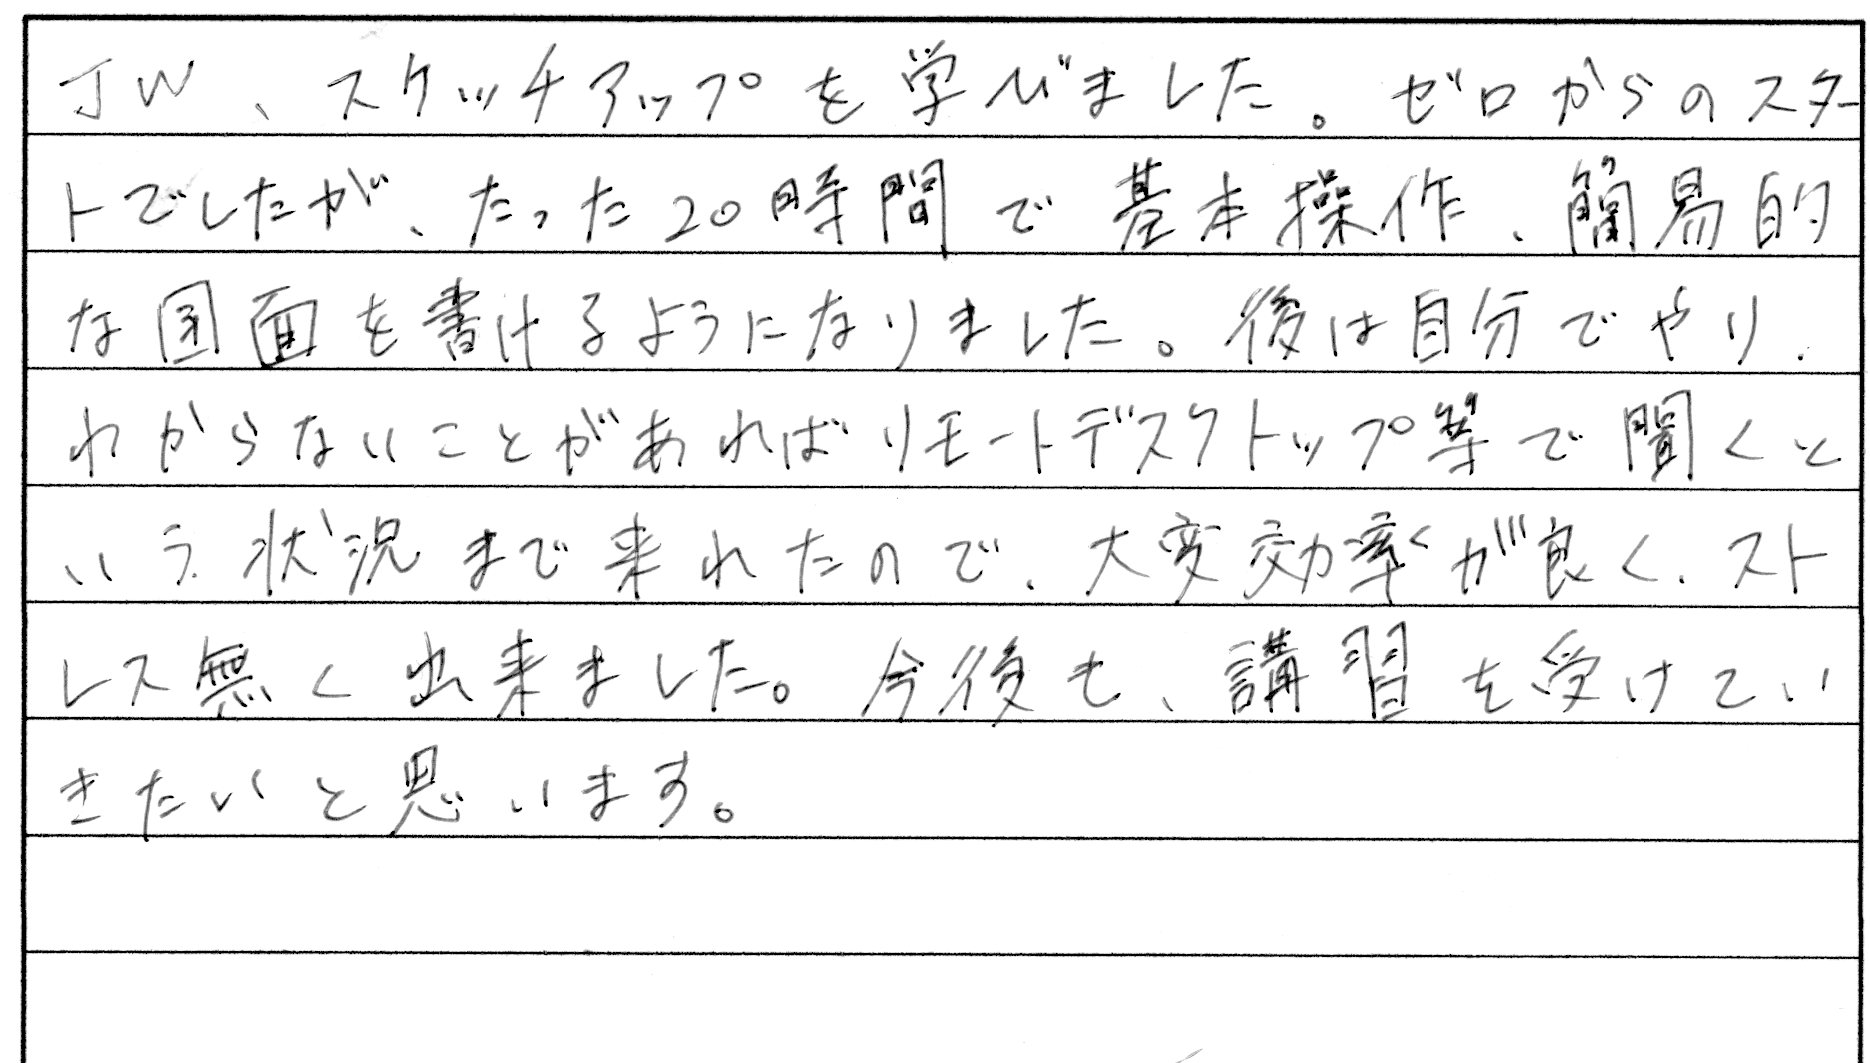 JW、スケッチアップを学びました。ゼロからのスター
トでしたが、たった20時間で基本操作、簡易的
な図面を書けるようになりました。後は自分でやり、
わからないことがあればリモートデスクトップ等で聞くと
いう状況まで来れたので、大変効率が良く、スト
レス無く出来ました。今後も、講習を受けてい
きたいと思います。